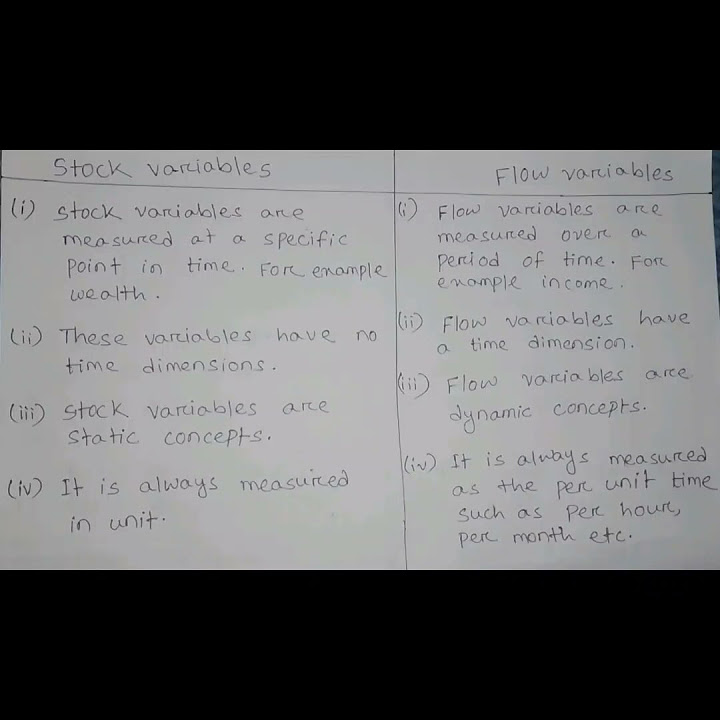 Stock variables
(i) Stock variables are
measured at a specific
point in time. For example
wealth.
(ii) These variables have no
time dimensions.
(iii) Stock variables are
static concepts.
(iv) It is always measured
in unit.
Flow variables
(i) Flow variables are
measured over a
period of time. For
example income.
(ii) Flow variables have
a time dimension.
(iii) Flow variables are
dynamic concepts.
(iv) It is always measured
as the per unit time
such as per hour,
per month etc.